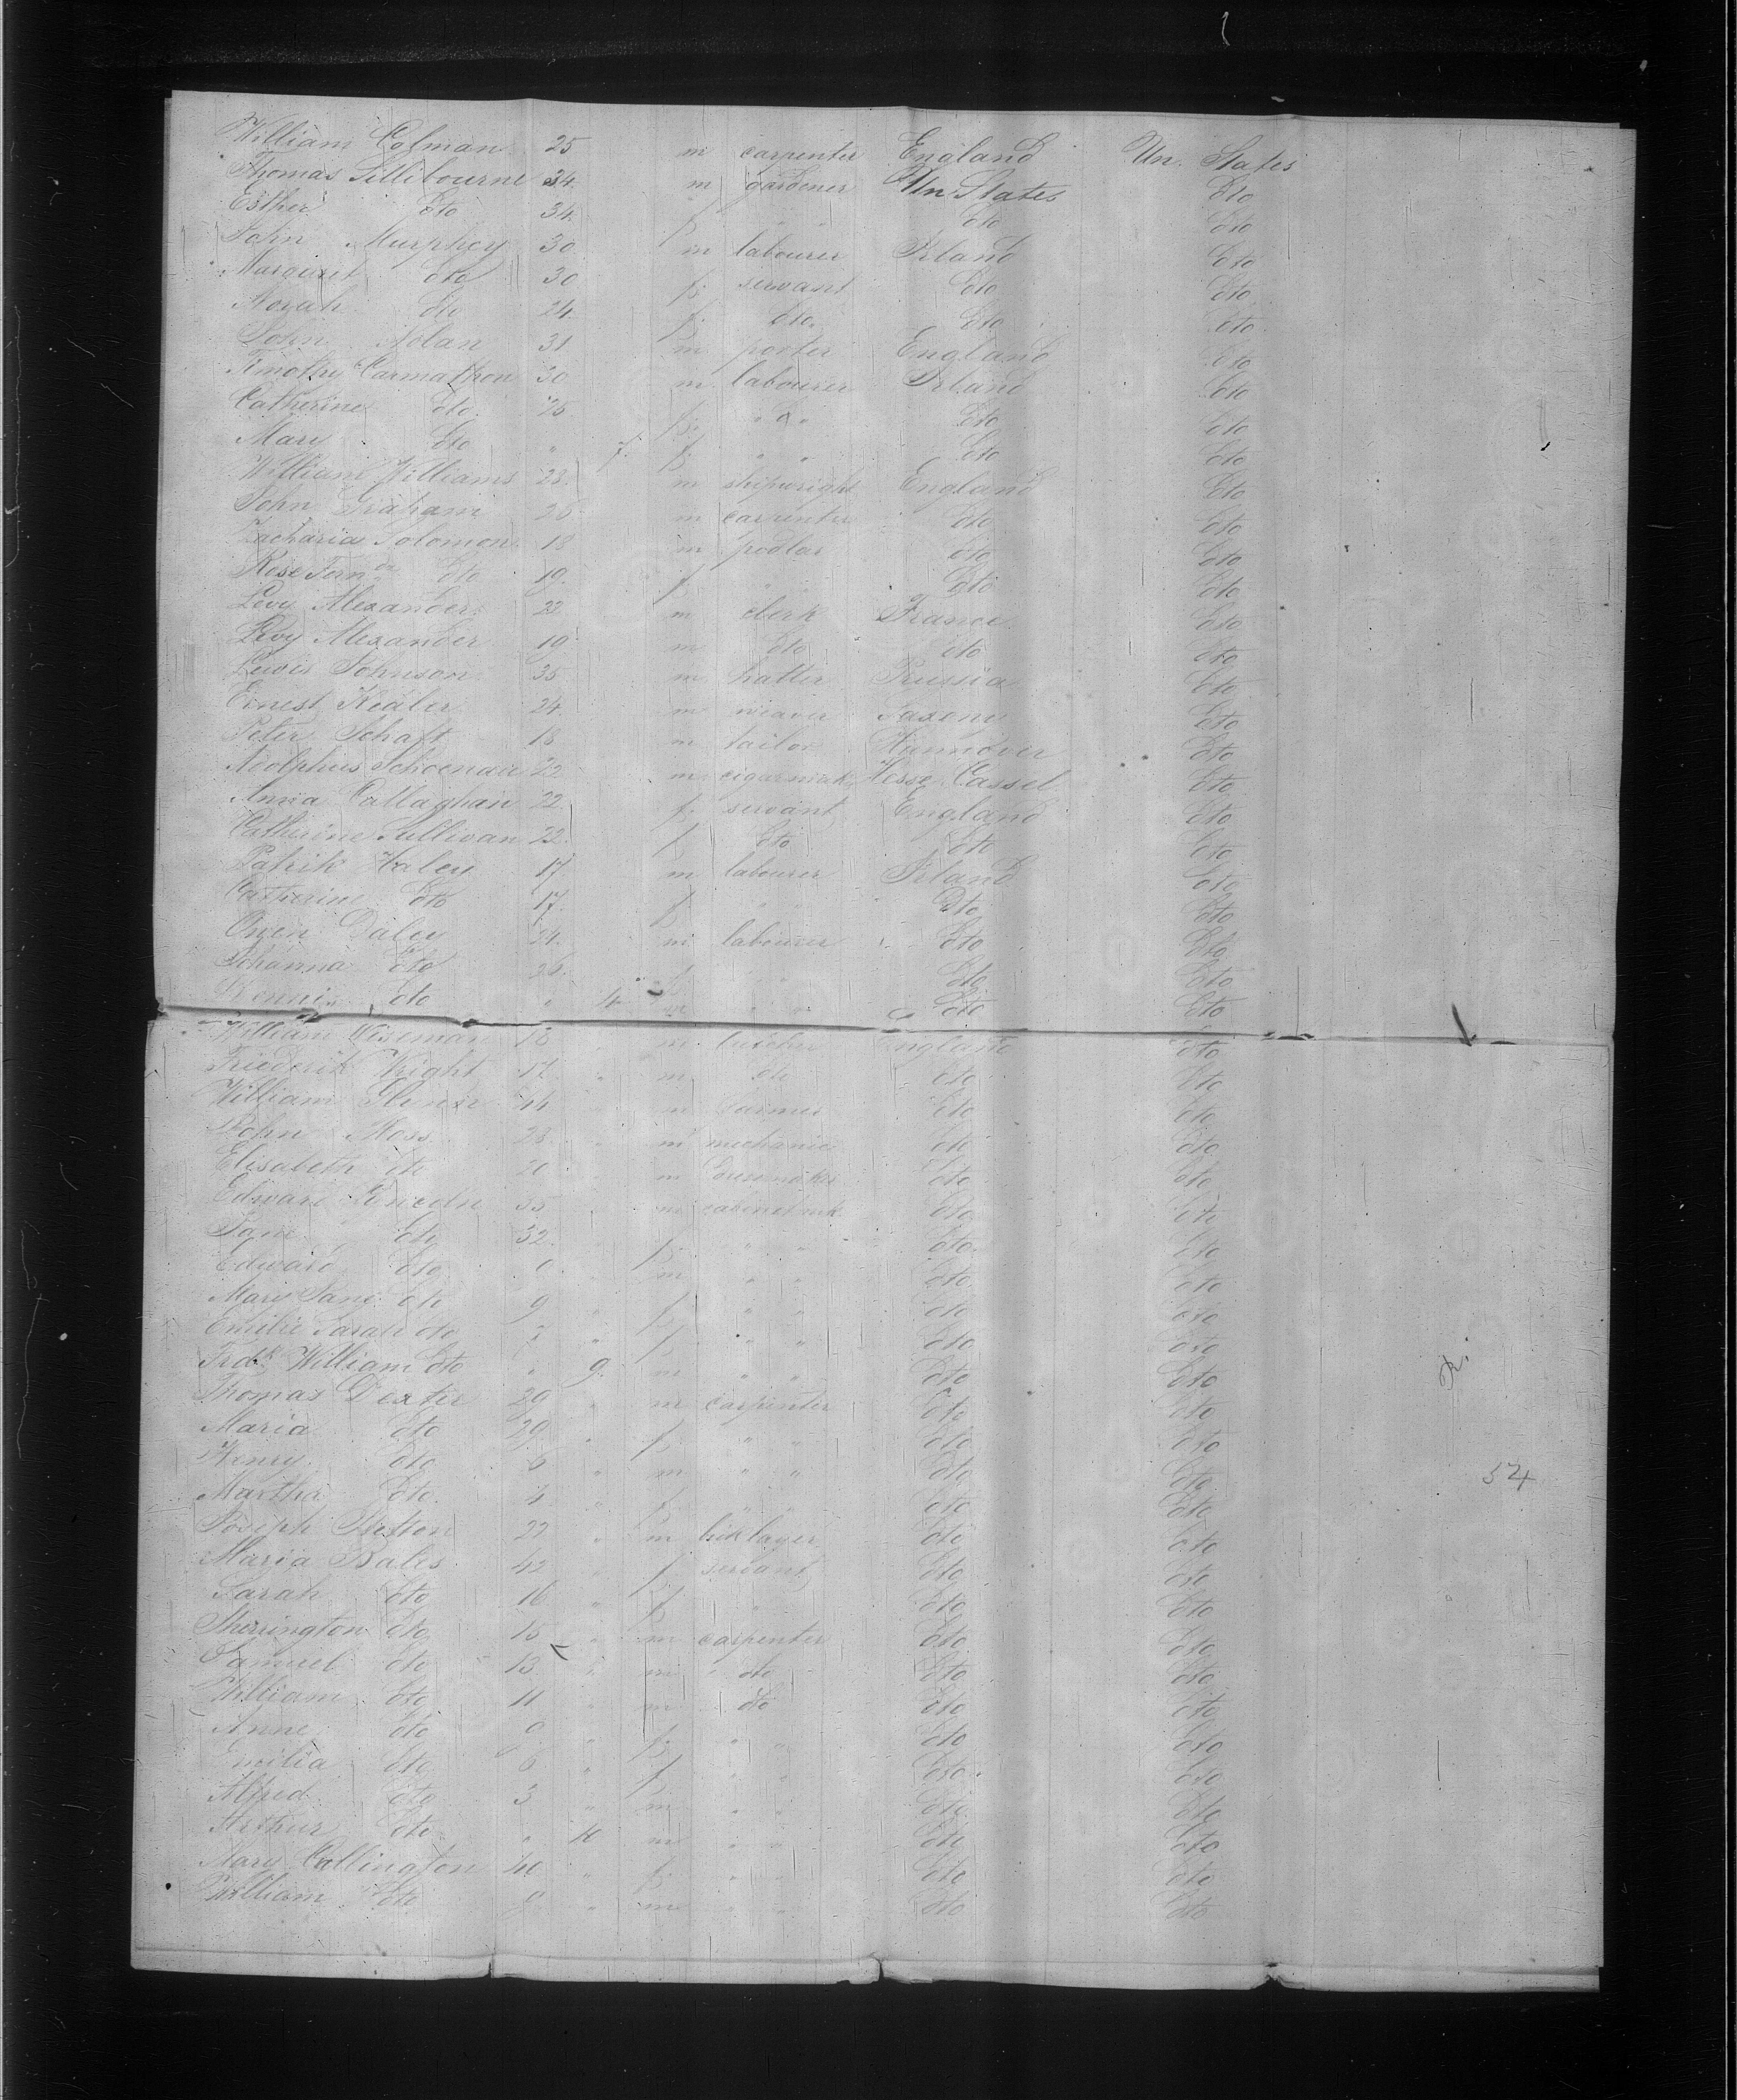 William Colman 25 m carpenter England Un. States
Thomas Sillibourne 34 m gardener Un. States dto
Esther dto 34 f " " dto dto
John Murphey 30 m labourer Irland dto
Margaret dto 30 f. servant dto dto
Norah dto 24 f. dto. dto dto
John Nolan 31 m porter England dto
Timothy Carmathon 30 m labourer Irland dto
Catherine dto 25 f. " " dto dto
Mary dto " 7. f. " " dto dto
William Williams 23. m shipwright England dto
John Graham 26 m carpenter dto dto
Zacharia Solomon 18 m pedlar dto dto
Rose dto 19. f. " " dto dto
Levy Alexander 22 m clerk France dto
Levy Alexander 19 m dto dto dto
Lewis Johnson 35 m hatter Prussia dto
Ernest Kealer 24. m weaver Saxony dto
Peter Schaft 18 m tailor Hannover dto
Adolphus Schoenau 22 m cigarmak. Hesse Cassel dto
Anna Callaghan 22. f. servant England dto
Catherine Sullivan 22. f dto dto dto
Patrik Haley 17 m labourer Irland dto
Catherine dto 17. f " " dto dto
Owen Daley 24. m labourer dto dto
Johanna dto 26. f. " " dto dto
Dennis dto " 4 m " " dto dto
William Wiseman 18 m butcher England dto
Friederik Wright 17. " m dto dto dto
William 44 m farmer dto dto
John Moss 23 m mechanic dto dto
Elisabeth dto 20 m dressmaker dto dto
Edward 35 m cabinetmk. dto dto
Jane dto 32. f. " " dto dto
Edward dto m " " dto dto
Mary Jane dto 9 " f. " " dto dto
Emilie Sarah dto " f. " " dto dto
Frdk William dto " 9. m " " dto dto
Thomas Dexter 29 " m carpenter dto dto
Maria dto 29 " f. " " dto dto
Henry dto 6 " m " " dto dto
Martha dto. 4 " f. " " dto dto
Joseph 22 " m bricklayer dto dto
Maria Bales 42 " f. servant dto dto
Sarah dto 16 " f. " dto dto
Sherrington dto 15 " m carpenter dto dto
Samuel dto 13 " m dto dto dto
William dto 11 " m dto dto dto
Anne dto 9 " f. " " dto dto
Emilia dto 6 " f. " " dto dto
Alfred dto 3 " m " " dto dto
Arthur dto " 10 m " " dto dto
Mary Collington 40 " f. " " dto dto
William dto " m " " dto dto
54